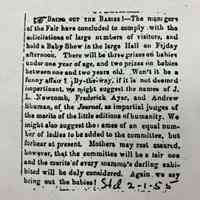 BRING OUT THE BABIES!—The managers
of the Fair have concluded to comply with the
solicitations of large numbers of visitors, and
hold a Baby Show in the large Hall on Friday
afternoon. There will be three prizes on babies
under one year of age, and two prizes on babies
between one and two years old. Won't it be a
funny affair? By-the-way, if it is not deemed
impertinent, we might suggest the names of J.
L. Newcomb, Frederick Ayer, and Andrew
Shuman, of the Journal, as impartial judges of
the merits of the little editions of humanity. We
might also suggest the names of an equal num-
ber of ladies to be added to the committee, but
forbear at present. Mothers may rest assured,
however, that the committee will be a fair one
and the merits of every mamma's darling exhi-
bited will be duly considered. Again we say
bring out the babies! Std 2-1-55